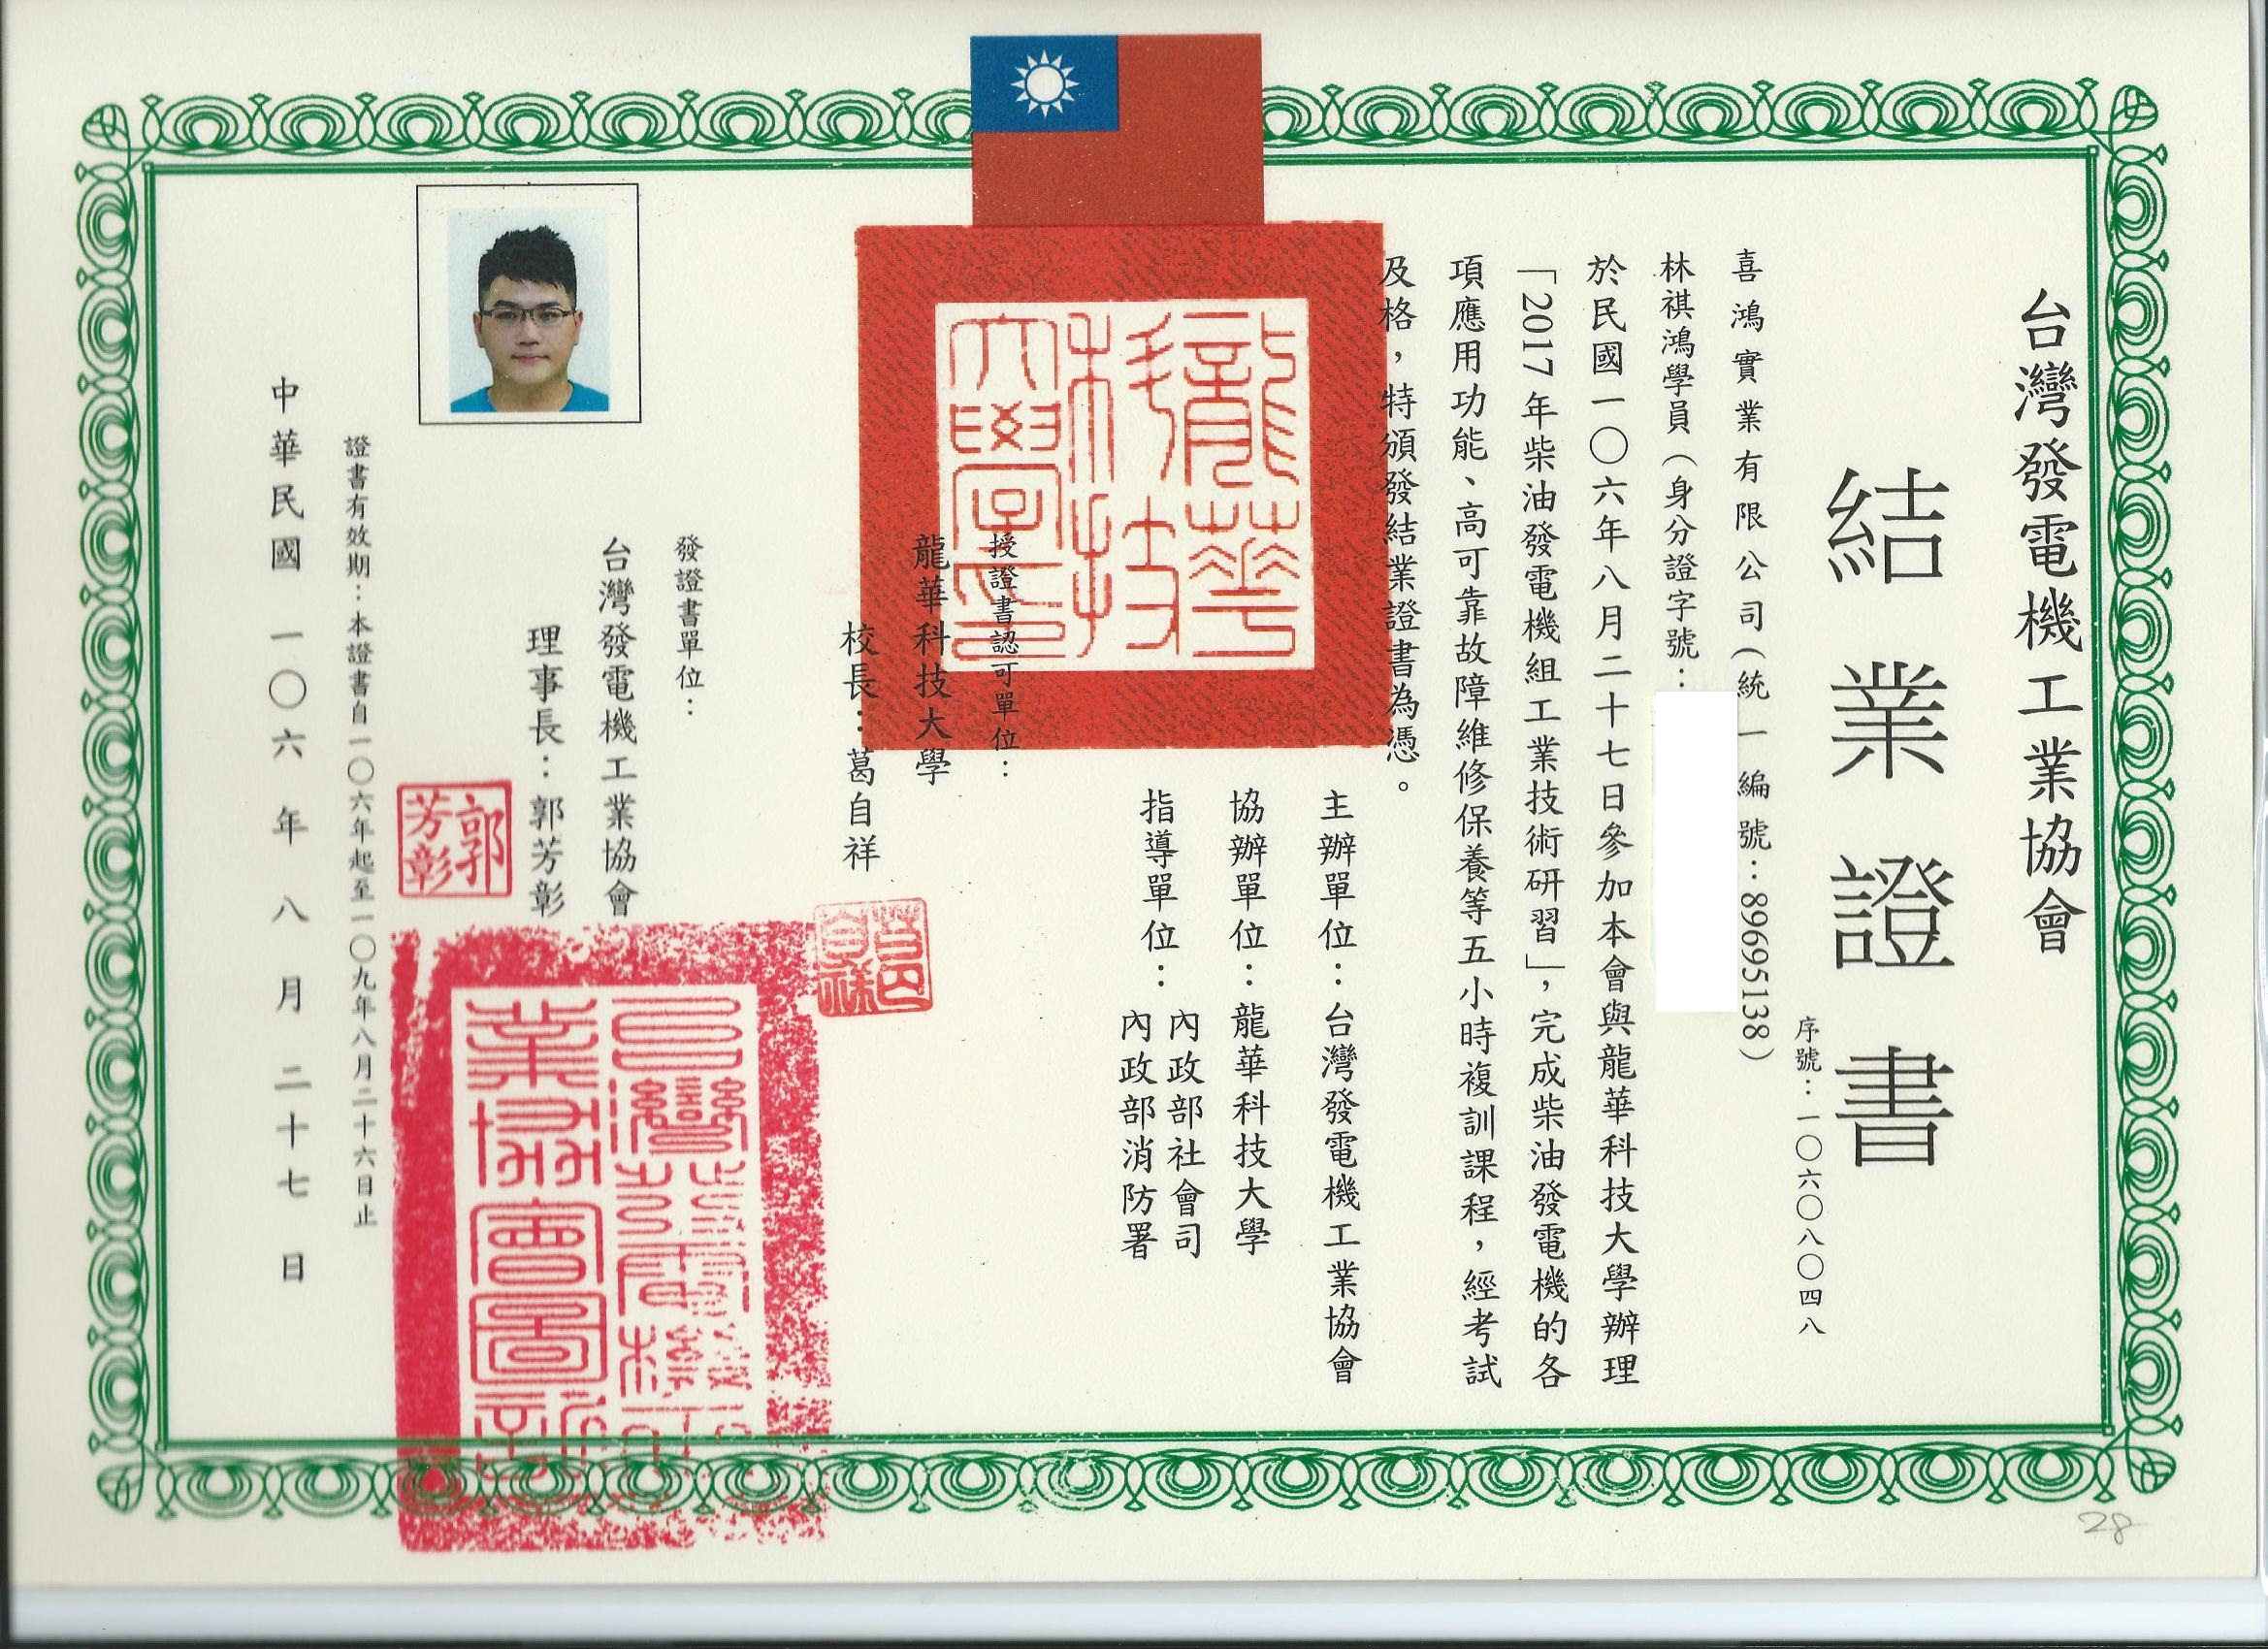 台灣發電機工業協會
結業證書
序號：一〇六〇八〇四八
喜鴻實業有限公司(統一編號：89695138)
林祺鴻學員(身分證字號：
於民國一〇六年八月二十七日參加本會與龍華科技大學辦理
「2017年柴油發電機組工業技術研習」，完成柴油發電機的各
項應用功能、高可靠故障維修保養等五小時複訓課程，經考試
及格，特頒發結業證書為憑。
主辦單位：台灣發電機工業協會
協辦單位：龍華科技大學
指導單位：內政部社會司
內政部消防署
龍華科技大學印
授證書認可單位：
龍華科技大學
校長：葛自祥
葛自祥
發證書單位：
台灣發電機工業協會
理事長：郭芳彰
郭芳彰
證書有效期：本證書自一〇六年起至一〇九年八月二十六日止
中華民國一〇六年八月二十七日
28